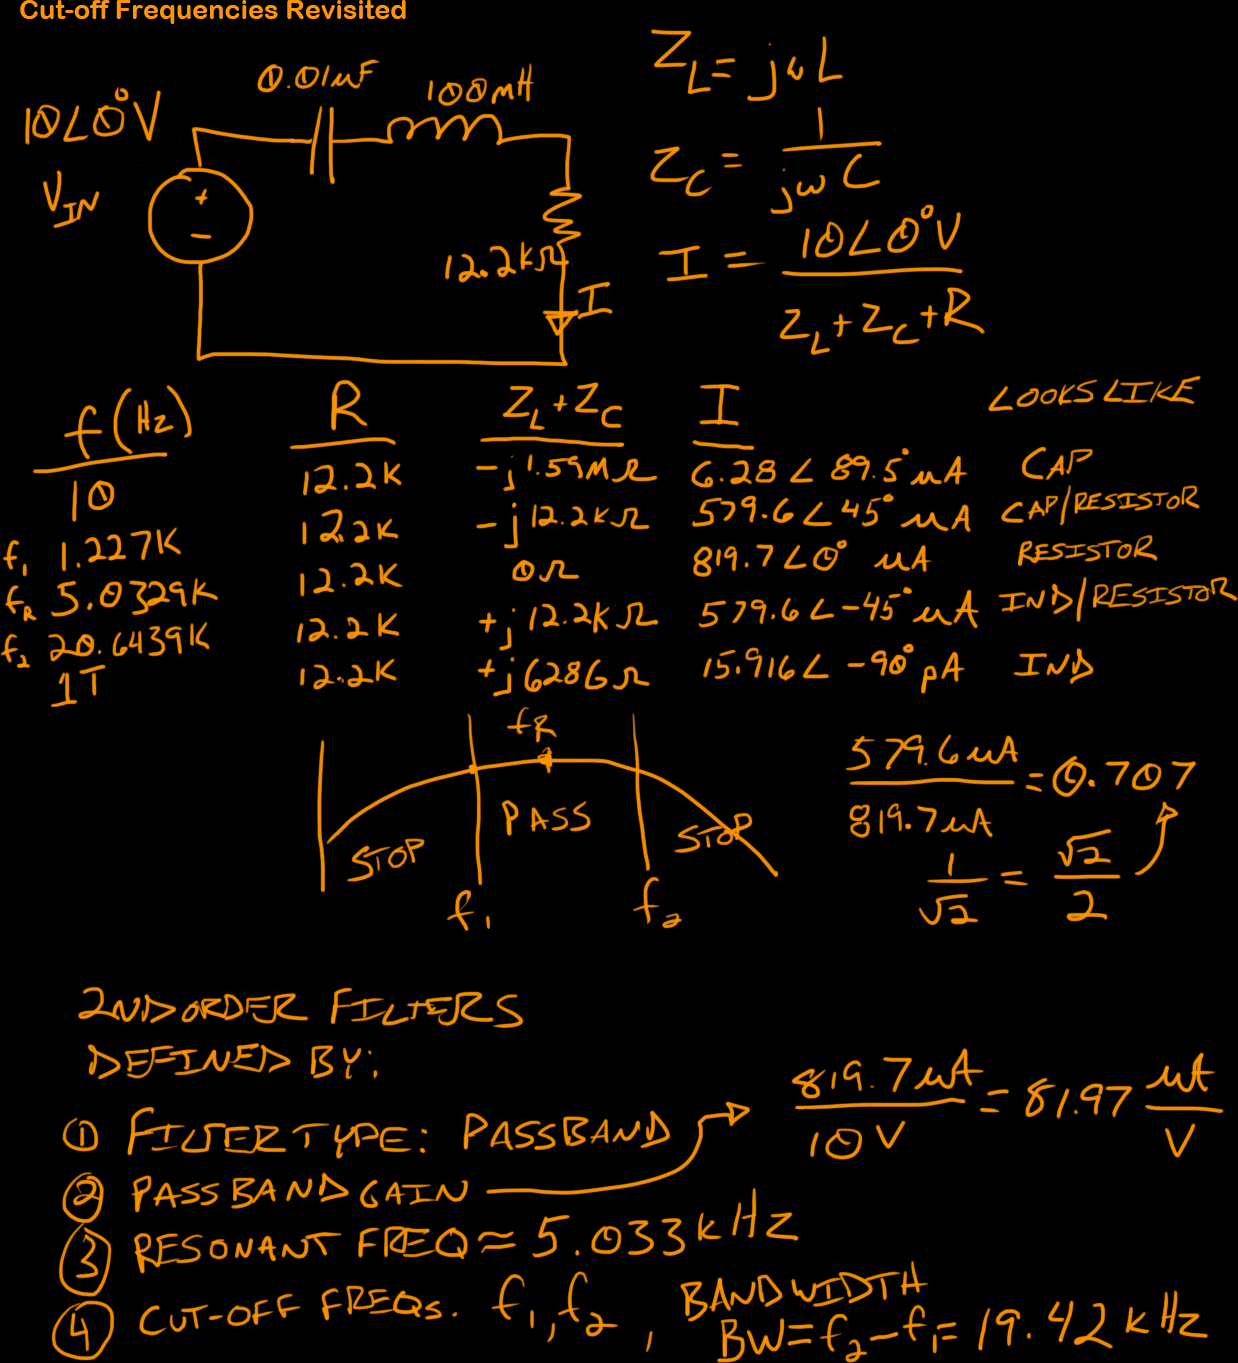 Cut-off Frequencies Revisited
10∠0°V
V_IN
+
-
0.01uF
100mH
12.2kΩ
I
Z_L = jωL
Z_C = 1/(jωC)
I = 10∠0°V / (Z_L + Z_C + R)
f(Hz) R Z_L+Z_C I LOOKS LIKE
10 12.2K -j1.59MΩ 6.28∠89.5° uA CAP
f1 1.227K 12.2K -j12.2kΩ 579.6∠45° uA CAP/RESISTOR
fR 5.0329K 12.2K 0Ω 819.7∠0° uA RESISTOR
f2 20.6439K 12.2K +j12.2kΩ 579.6∠-45° uA IND/RESISTOR
1T 12.2K +j628GΩ 15.916∠-90° pA IND
fR
STOP
PASS
STOP
f1
f2
579.6uA / 819.7uA = 0.707
1/√2 = √2/2
2ND ORDER FILTERS
DEFINED BY:
① FILTER TYPE: PASSBAND
② PASSBAND GAIN → 819.7uA / 10V = 81.97 uA/V
③ RESONANT FREQ ≈ 5.033kHz
④ CUT-OFF FREQs. f1, f2, BANDWIDTH
BW = f2 - f1 = 19.42kHz